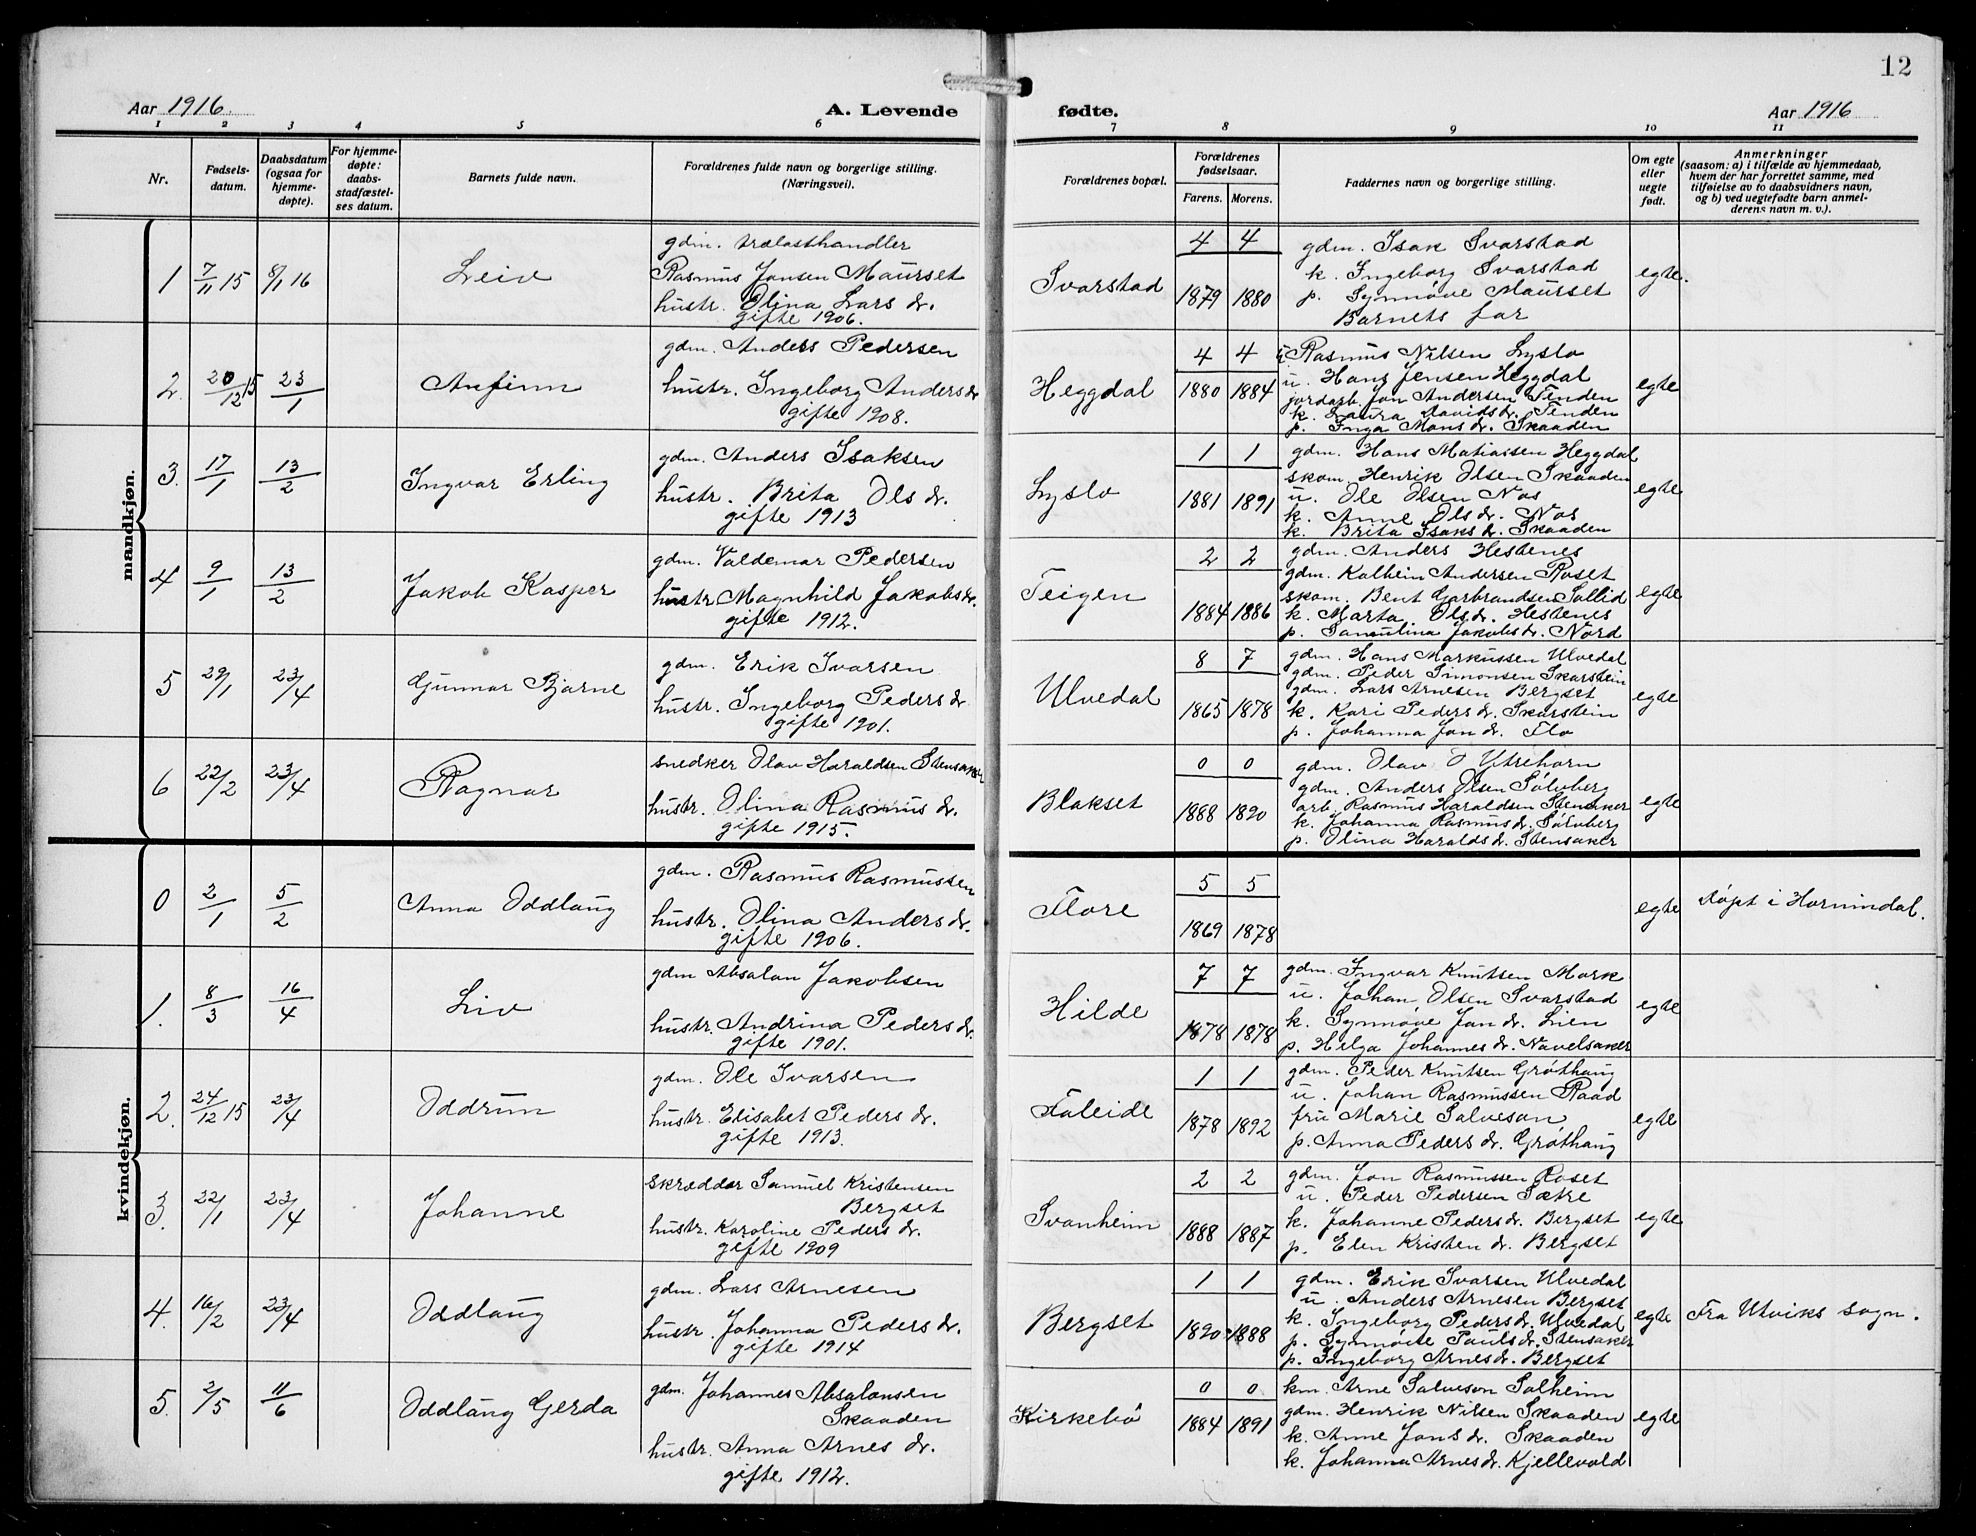 12
Aar 1916
A. Levende fødte.
Aar 1916
1 2 3 4 5 6 7 8 9 10 11
Nr.
Fødsels-
datum.
Daabsdatum
(ogsaa for
hjemme-
døpte).
For hjemme-
døpte:
daabs-
stadfæstel-
ses datum.
Barnets fulde navn.
Forældrenes fulde navn og borgerlige stilling.
(Næringsvei).
Forældrenes bopæl.
Forældrenes
fødselsaar.
Farens. Morens.
Faddernes navn og borgerlige stilling.
Om egte
eller
uegte
født.
Anmerkninger
(saasom: a) i tilfælde av hjemmedaab,
hvem der har forrettet samme, med
tilføielse av to daabsvidners navn,
og b) ved uegtefødte barn anmel-
derens navn m. v.).
mandkjøn.
1 7/11 15 8/1 16 Leiv
gdm. trælasthandler
Rasmus Jansen Maurset
hustr. Olina Lars dr.
gifte 1906.
Svarstad
4 4
1879 1880
gdm. Isak Svarstad
k. Ingeborg Svarstad
p. Synnøve Maurset
Barnets far
egte.
2. 20/12 15 23/1 Anfinn
gdm. Anders Pedersen
hustr. Ingeborg Anders dr
gifte 1908.
Heggdal
4 4
1880 1884
Rasmus Nilsen Lyslo
u. Hans Jensen Heggdal
jordarb. Jon Andersen Tenden
k. Laura Davids dr. Tenden
p. Inga Mons dr. Skaaden
egte
3. 17/1 13/2 Ingvar Erling
gdm. Anders Isaksen
hustr. Brita Ols dr.
gifte 1913
Lyslo
1 1
1881 1891
gdm. Hans Matiasen Heggdal
skom. Henrik Olsen Skaaden
u. Ole Olsen Nos
k. Anne Ols dr. Nos
k. Brita Isaks dr. Skaaden
egte
4 9/1 13/2 Jakob Kasper
gdm. Valdemar Pedersen
hustr Magnhild Jakobs dr.
gifte 1912.
Teigen
2 2
1884 1886
gdm. Anders Hestenes
gdm. Kolbein Andersen Roset
skom. Bent Garbrandsen Sollid
k. Marta Ols dr. Hestenes
p. Samulina Jakobs dr. Nord
egte
5 29/1 23/4 Gunnar Bjarne
gdm. Erik Ivarsen
hustr. Ingeborg Peders dr
gifte 1901.
Ulvedal
8 7
1865 1878
gdm. Hans Markussen Ulvedal
gdm. Peder Simonsen Skarstein
gdm. Lars Arnesen Bergset
k. Kari Peders dr. Skarstein
p. Johanna Jon dr. Flo
egte
6 22/2 23/4 Ragnar
snedker Olav Haraldsen Stensaker
hustr. Olina Rasmus dr.
gifte 1915.
Blakset
0 0
1888 1820
gdm. Olav O Ytrehorn
gdm. Anders Olsen Sølvberg
arb. Rasmus Haraldsen Stensaker
k. Johanna Rasmus dr. Sølvberg
p. Olina Haralds dr. Stensaker
egte
kvindekjøn.
0 2/1 5/2 Anna Oddlaug
gdm. Rasmus Rasmussen
hustr. Olina Anders dr.
gifte 1906.
Flore
5 5
1869 1878
egte
Døpt i Hornindal.
1. 8/3 16/4 Liv
gdm Absalon Jakobsen
hustr. Andrina Peders dr.
gifte 1901.
Hilde
7 7
1878 1878
gdm. Ingvar Knutsen Mork
u. Johan Olsen Svarstad
k. Synnøve Jon dr. Lien
p. Helga Johannes dr. Navelsaker
egte
2. 24/12 15 23/4 Oddrun
gdm. Ole Ivarsen
hustr. Elisabet Peders dr.
gifte 1913.
Faleide
1 1
1878 1892
gdm. Peder Knutsen Grøthaug
u. Johan Rasmussen Raad
fru Marie Salveson
p. Anna Peders dr. Grøthaug
egte
3. 22/1 23/4 Johanne
skrædder Samuel Kristensen
Bergset
hustr. Karoline Peders dr.
gifte 1909
Svanheim
2 2
1888 1887
gdm. Jon Rasmussen Roset
u. Peder Pedersen Sætre
k. Johanne Peders dr. Bergset
p. Elen Kristen dr. Bergset
egte
4. 16/2 23/4 Oddlaug
gdm. Lars Arnesen
hustr. Johanna Peders dr.
gifte 1914
Bergset
1 1
1820 1888
gdm. Erik Ivarsen Ulvedal
u. Anders Arnesen Bergset
k. Ingeborg Peders dr. Ulvedal
p. Synnøve Pauls dr. Stensaker
p. Ingeborg Arnes dr. Bergset
egte
Fra Utviks sogn.
5. 2/5 11/6 Oddlaug Gerda
gdm. Johannes Absalonsen
Skaaden
hustr. Anna Arnes dr.
gifte 1912.
Kirkebø
0 0
1884 1891
km. Arne Salveson Solheim
gdm. Henrik Nilsen Skaaden
k. Anne Jons dr. Skaaden
k. Johanna Arnes dr. Kjellevold
egte